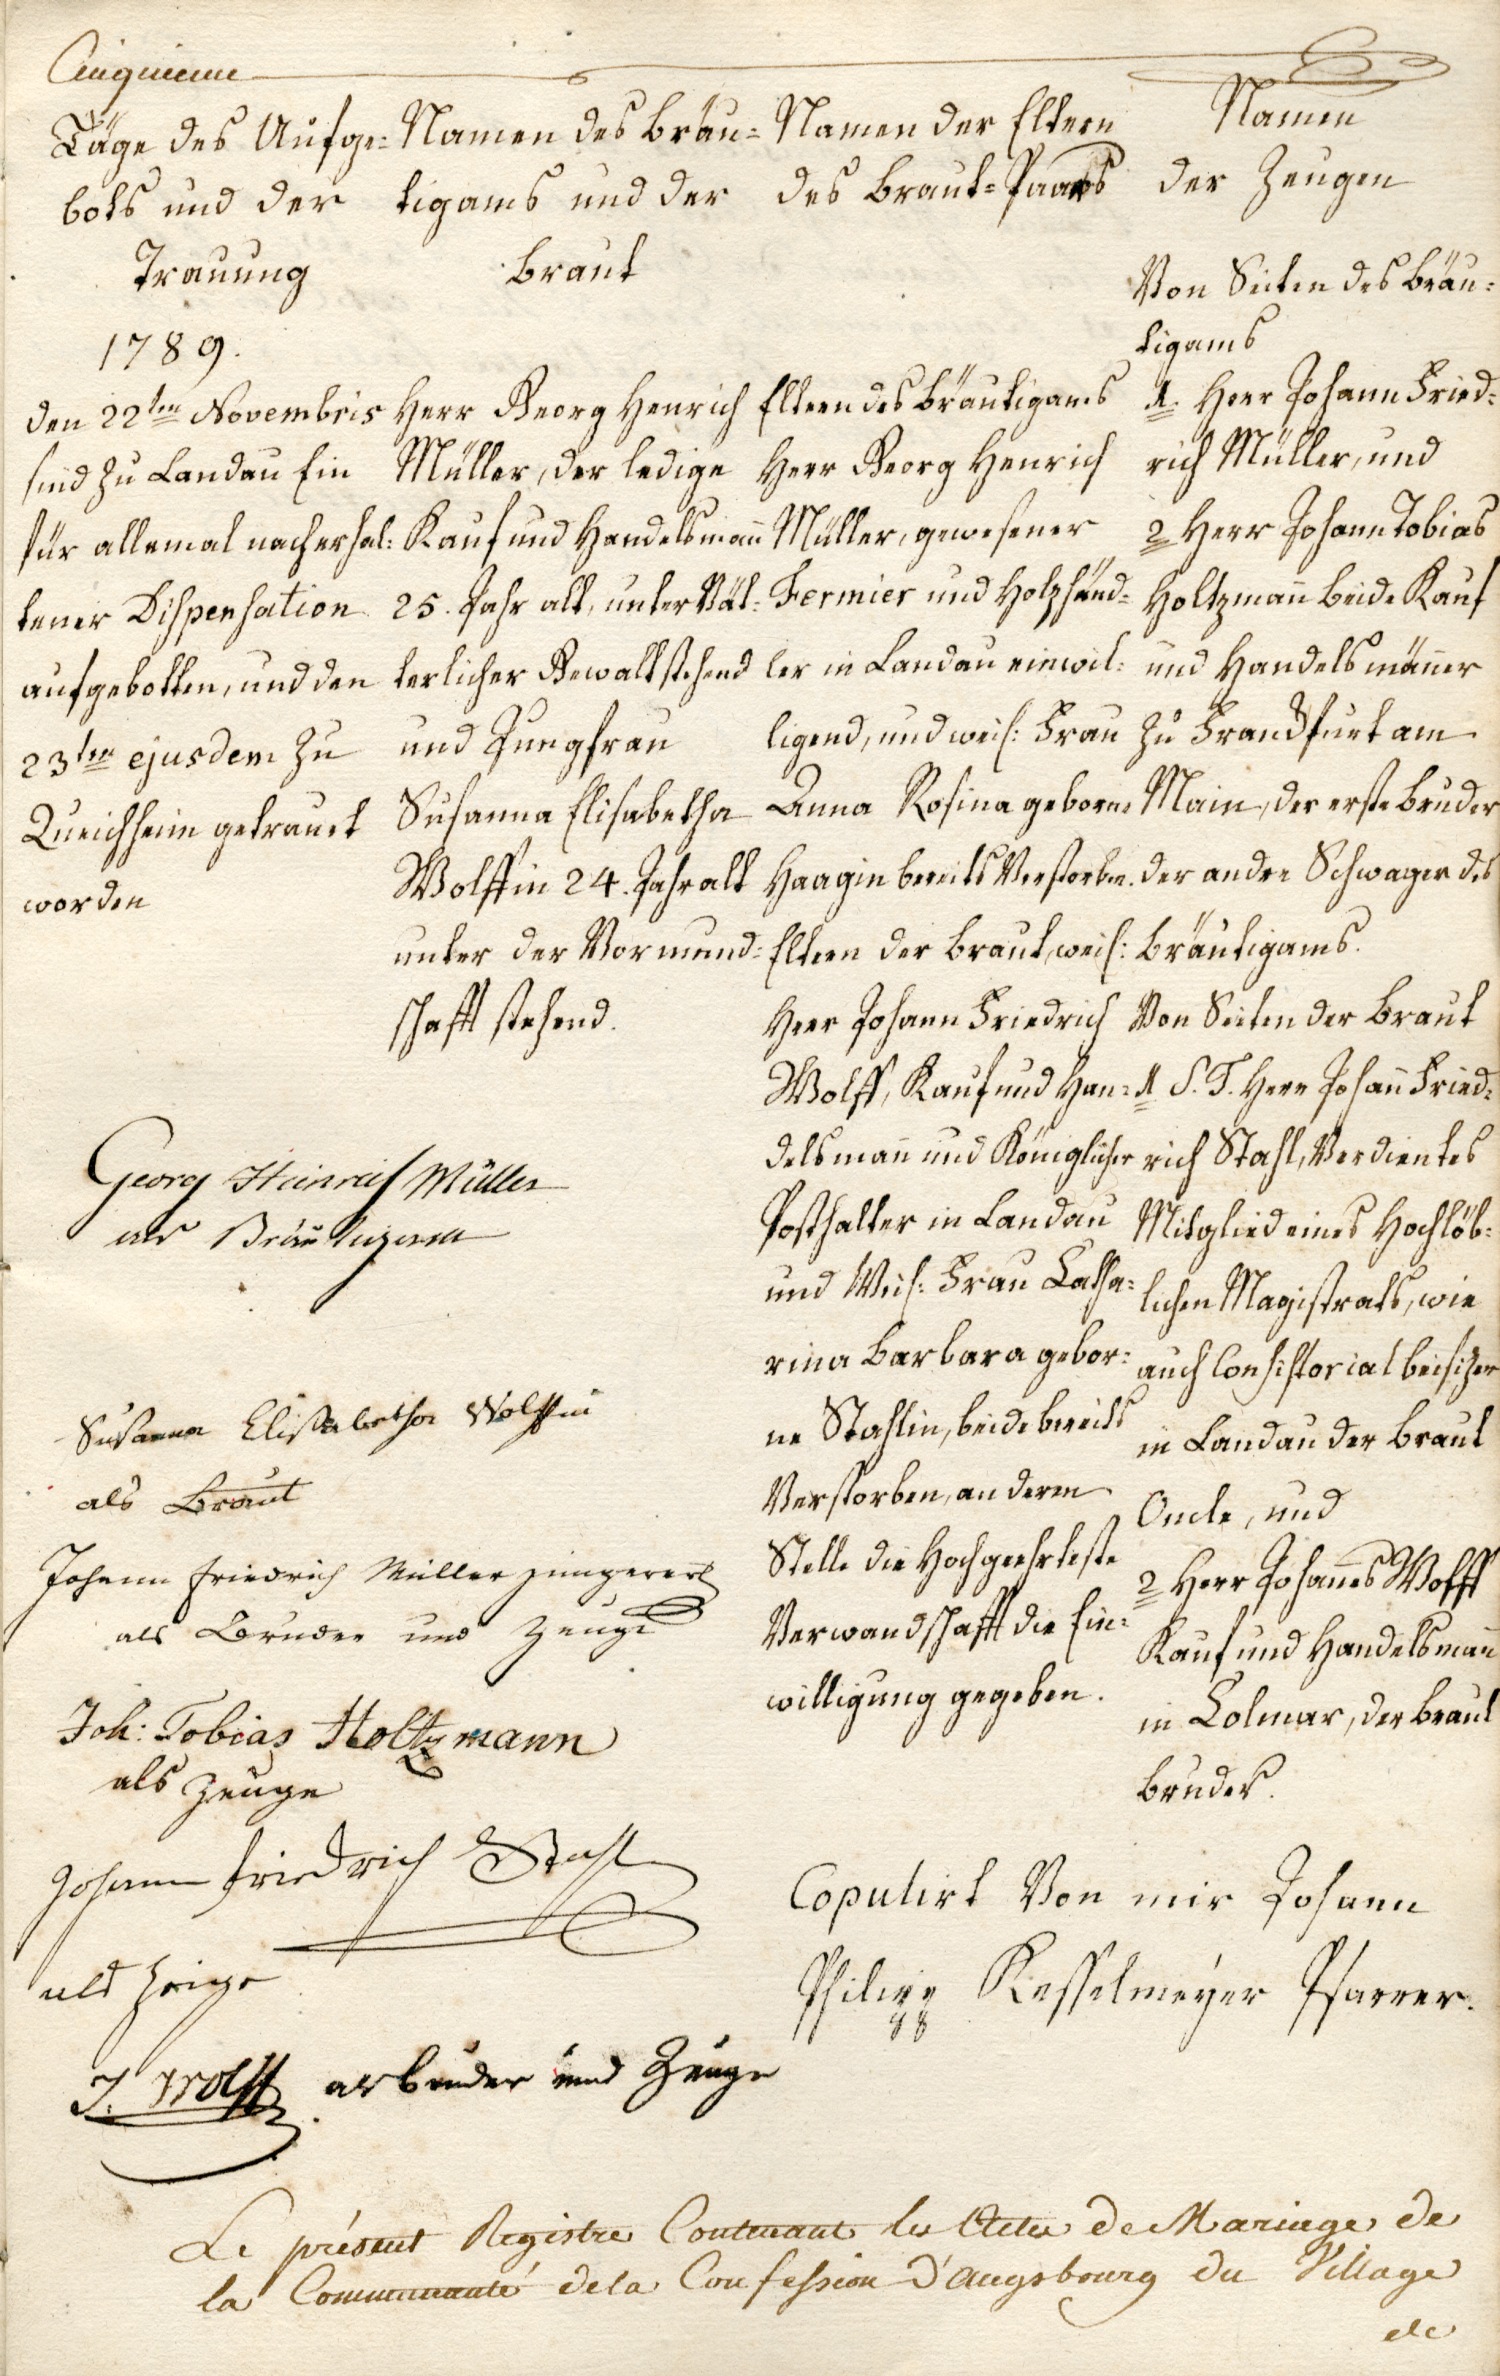 Cinquieme
Täge des Aufge=
bots und der
Trauung
1789.
den 22ten Novembris
sind zu Landau Ein
für allemal nach erhal:
tener Dispensation
aufgebotten, und den
23ten ejusdem zu
Queichheim getrauet
worden
Namen des Bräu=
tigams und der
Braut
Herr Georg Henrich
Müller, der ledige
Kauf und Handelsmañ
25. Jahr alt, unter Vät:
terlicher Gewalt stehend
und Jungfrau
Susanna Elisabetha
Wolffin 24. Jahr alt
unter der Vormund=
schafft stehend.
Namen der Eltern
des Braut=Paars
Eltern des Bräutigams
Herr Georg Henrich
Müller, gewesener
Fermier und Holzhänd=
ler in Landau einwil:
ligend, und weil: Frau
Anna Rosina geborne
Haagin bereits Verstorben.
Eltern der Braut, weil:
Herr Johann Friedrich
Wolff, Kauf und Han=
delsmañ und Königlicher
Posthalter in Landau
und Weil: Frau Catha=
rina Barbara gebor=
ne Stahlin, beide bereits
Verstorben, an deren
Stelle die Hochgeehrteste
Verwandschafft die Ein=
willigung gegeben.
Namen
der Zeugen
Von Seiten des Bräu=
tigams
1. Herr Johann Fried=
rich Müller, und
2 Herr Johann Tobias
Holtzmañ beide Kauf
und Handelsmäñer
zu Franckfurt am
Main, der erste Bruder
der andre Schwager des
Bräutigams.
Von Seiten der Braut
1 S. T. Herr Johañ Fried=
rich Stahl, Verdientes
Mitglied eines Hochlöb=
lichen Magistrats, wie
auch Consistorial beisizer
in Landau der Braut
Oncle, und
2 Herr Johañes Wolff
Kauf und Handelsmañ
in Colmar, der Braut
Bruder.
Georg Heinrich Müller
als Bräutigam
Susanna Elisabetha Wolffin
als Braut
Johann Friedrich Müller jüngerer
als Bruder und Zeuge
Joh: Tobias Holtzmann
als Zeuge
Johann Friedrich Stahl
als Zeuge
J. Wolff als Bruder und Zeuge
Copulirt Von mir Johann
Philipp Kesselmeyer Pfarrer.
Le présent Registre Contenant les Actes de Mariage de
la Communauté de la Confession D'augsbourg du Village
de